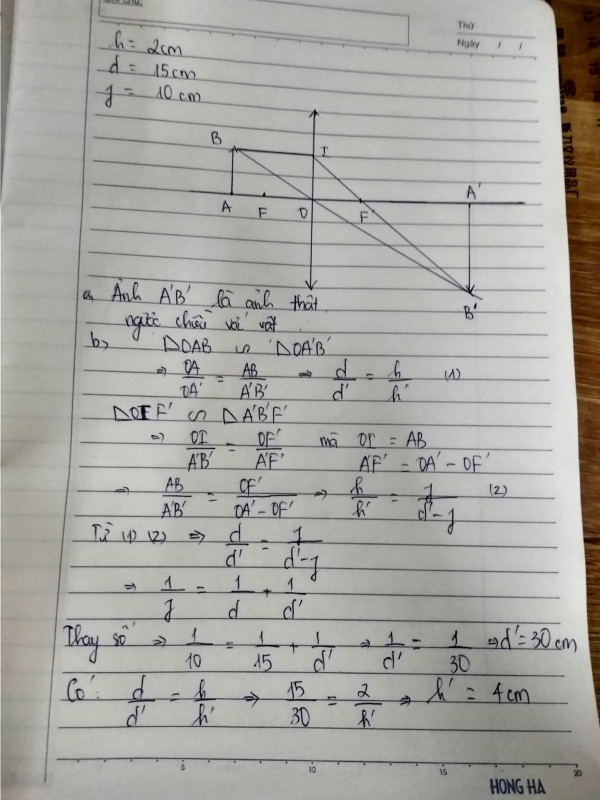 Thứ
Ngày / /
h = 2cm
d = 15cm
f = 10cm
B I A'
A F O F'
B'
a, Ảnh A'B' là ảnh thật
ngược chiều với vật.
b, ΔOAB ∽ ΔOA'B'
⇒ OA/OA' = AB/A'B' ⇒ d/d' = h/h' (1)
ΔOIF' ∽ ΔA'B'F'
⇒ OI/A'B' = OF'/A'F' mà OI = AB
A'F' = OA' - OF'
⇒ AB/A'B' = OF'/OA' - OF' ⇒ h/h' = f/d' - f (2)
Từ (1) (2) ⇒ d/d' = f/d' - f
⇒ 1/f = 1/d + 1/d'
Thay số ⇒ 1/10 = 1/15 + 1/d' ⇒ 1/d' = 1/30 ⇒ d' = 30cm
Có: d/d' = h/h' ⇒ 15/30 = 2/h' ⇒ h' = 4cm
5 10 15 20
HONG HA